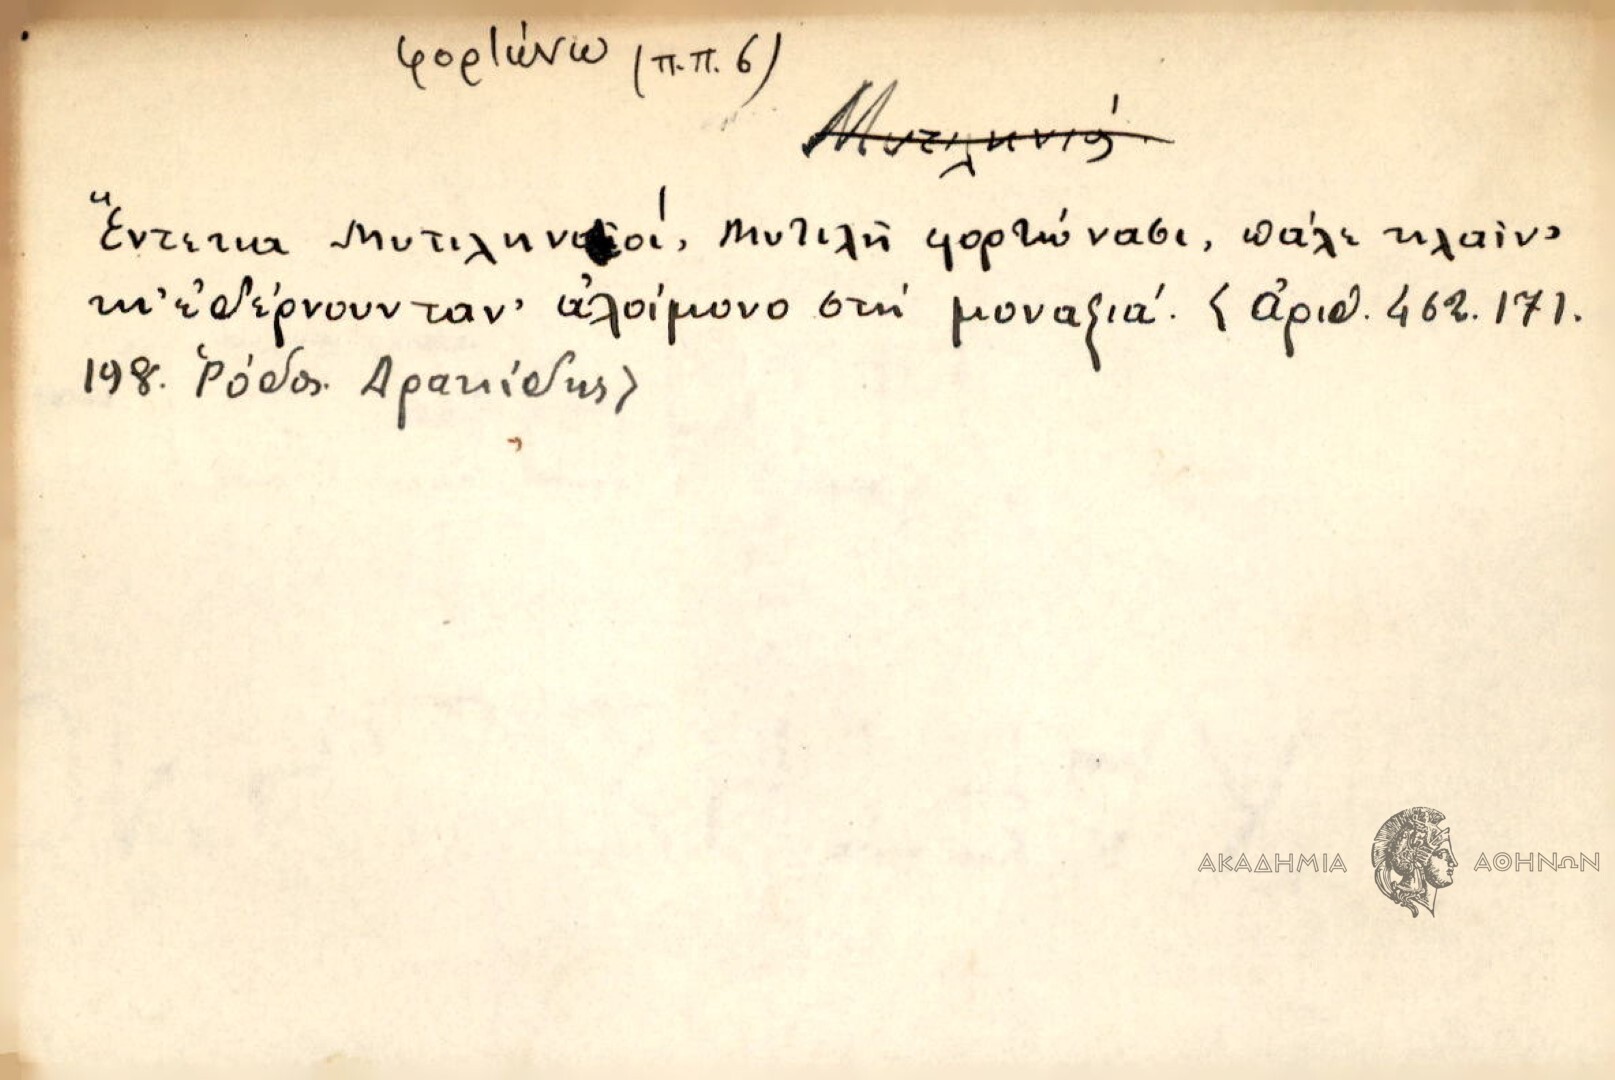 φορτώνω (π.π. 6)
Μυτιληνιά
Ἕντεκα Μυτιληνιοί, Μυτιλη φορτώνασι, πάλε κλαῖν'
κ' ἐδέρνουνταν' ἀλοίμονο στή μοναξιά. < Ἀριθ. 462. 171.
198. Ῥόδος. Δρακίδης >
ΑΚΑΔΗΜΙΑ ΑΘΗΝΩΝ